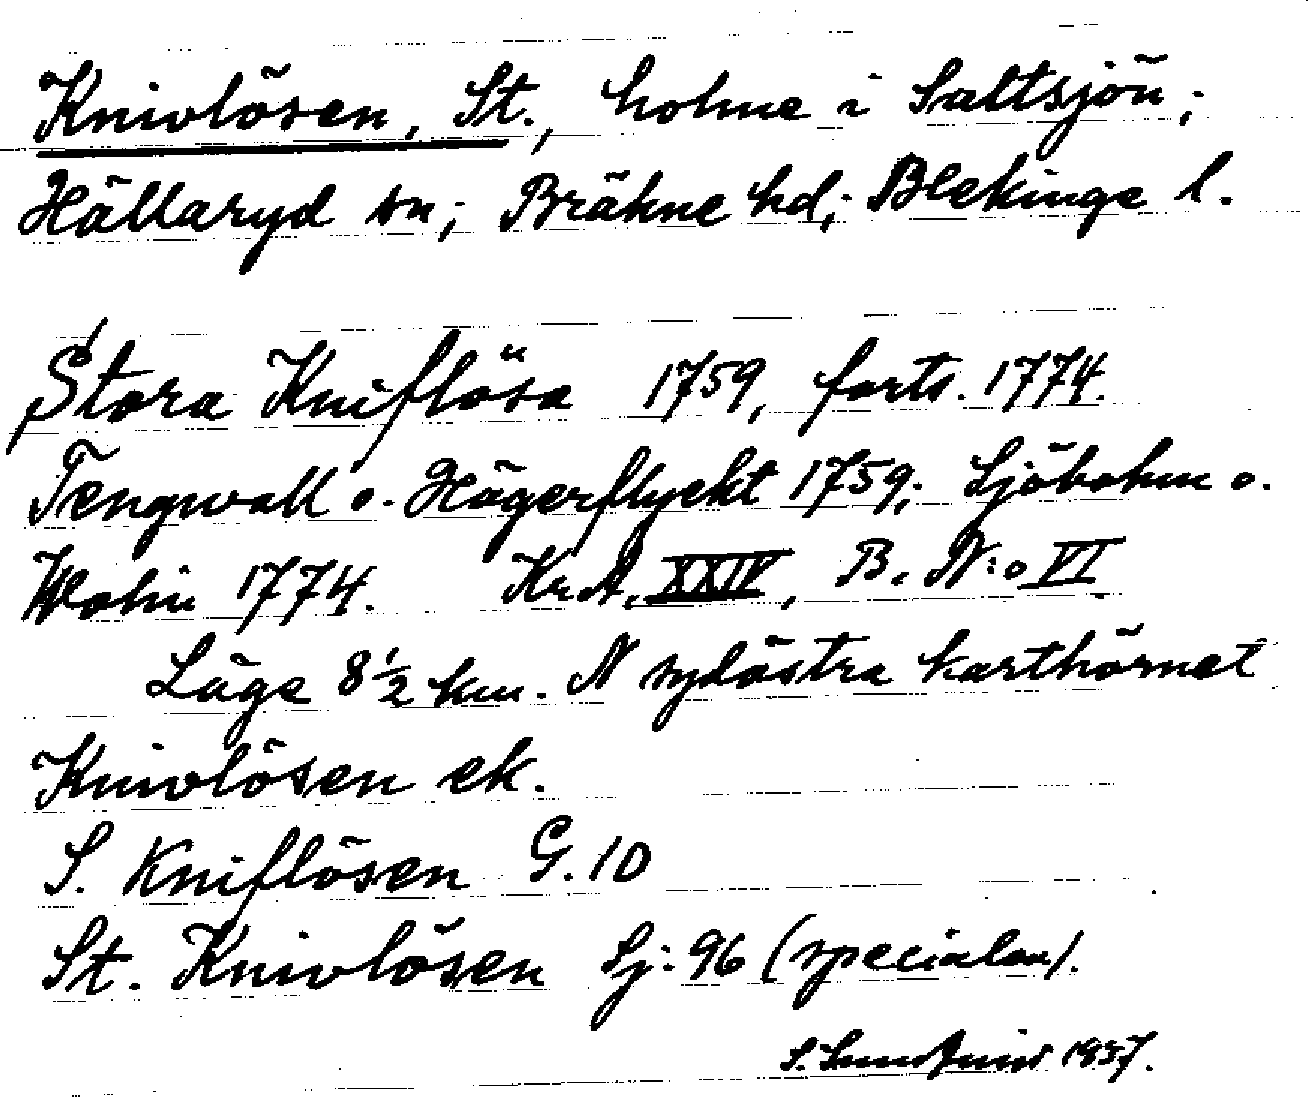 Knivlösen, St., holme i Saltsjön;
Hällaryd sn; Bräkne hd; Blekinge l.
Stora Kniflösa 1759, forts. 1774.
Tengwall o. Hägerflyckt 1759; Sjöbohm o.
Wohin 1774. Kr.A. XXIV, B. N:o VI
Läge 8 1/2 km. N sydöstra karthörnet
Knivlösen ek.
S. Kniflösen G. 10
St. Knivlösen Sj: 96 (specialen).
S. 1937.